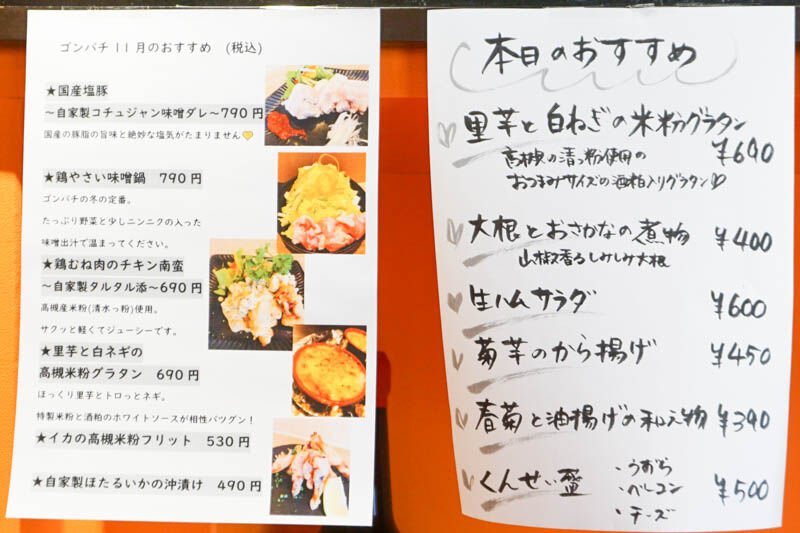 ゴンパチ 11月のおすすめ (税込)
★国産塩豚
～自家製コチュジャン味噌ダレ～790円
国産の豚脂の旨味と絶妙な塩気がたまりません💛
★鶏やさい味噌鍋 790円
ゴンパチの冬の定番。
たっぷり野菜と少しニンニクの入った
味噌出汁で温まってください。
★鶏むね肉のチキン南蛮
～自家製タルタル添～690円
高槻産米粉(清水っ粉)使用。
サクッと軽くてジューシーです。
★里芋と白ネギの
高槻米粉グラタン 690円
ほっくり里芋とトロっとネギ。
特製米粉と酒粕のホワイトソースが相性バツグン！
★イカの高槻米粉フリット 530円
★自家製ほたるいかの沖漬け 490円
本日のおすすめ
里芋と白ねぎの米粉グラタン
¥690
高槻の清っ粉使用の
おつまみサイズの酒粕入りグラタン♡
大根とおさかなの煮物 ¥400
山椒香るしみしみ大根
生ハムサラダ ¥600
菊芋のから揚げ ¥450
春菊と油揚げの和え物 ¥390
くんせい盛 ¥500
・うずら
・ベーコン
・チーズ